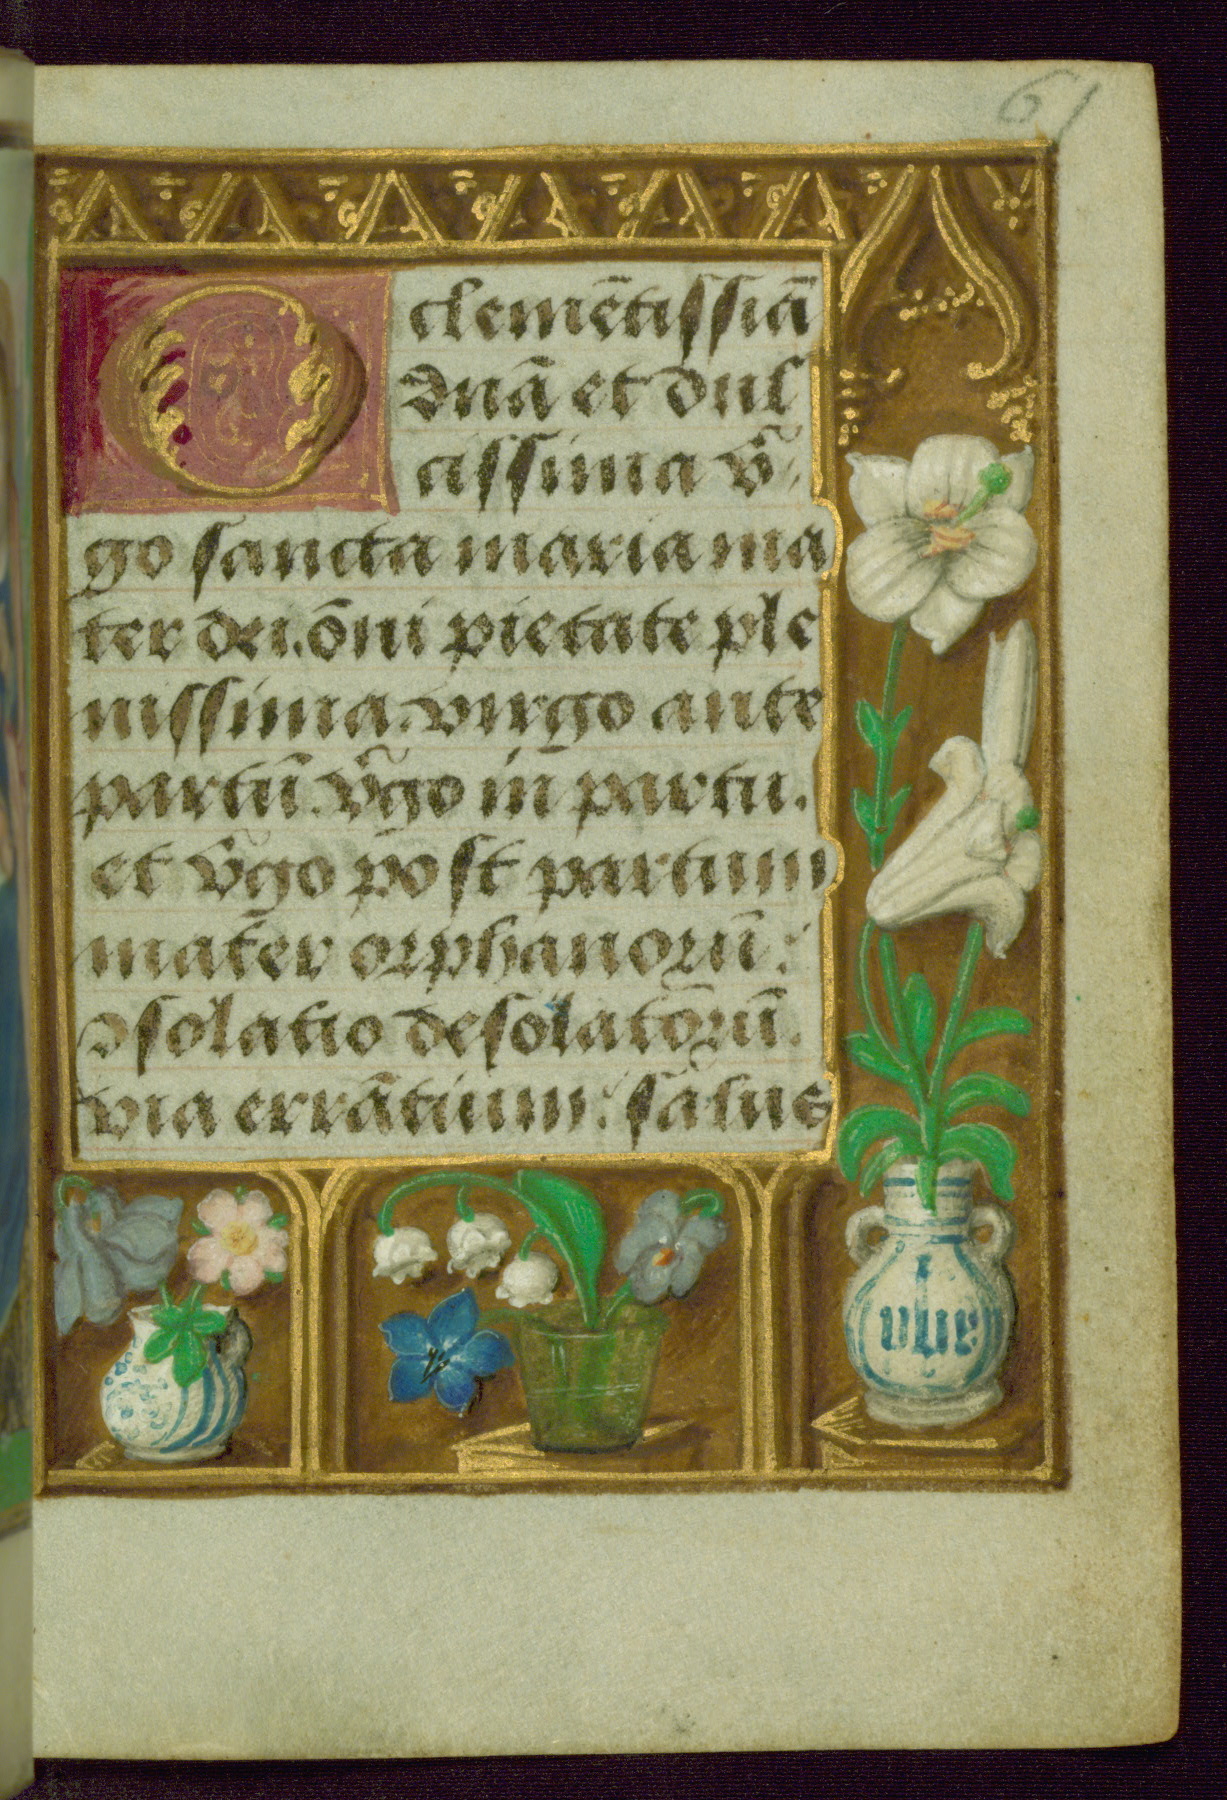 61
O clemētissiā
dnā et dul
cissima v̄
go sancta maria ma
ter dei. ōni pietate ple
nissima. virgo ante
partū. v̄go in partu.
et v̄go post partum
mat̄er orphanorū.
ꝯsolatio desolatorū.
via errātium. salus